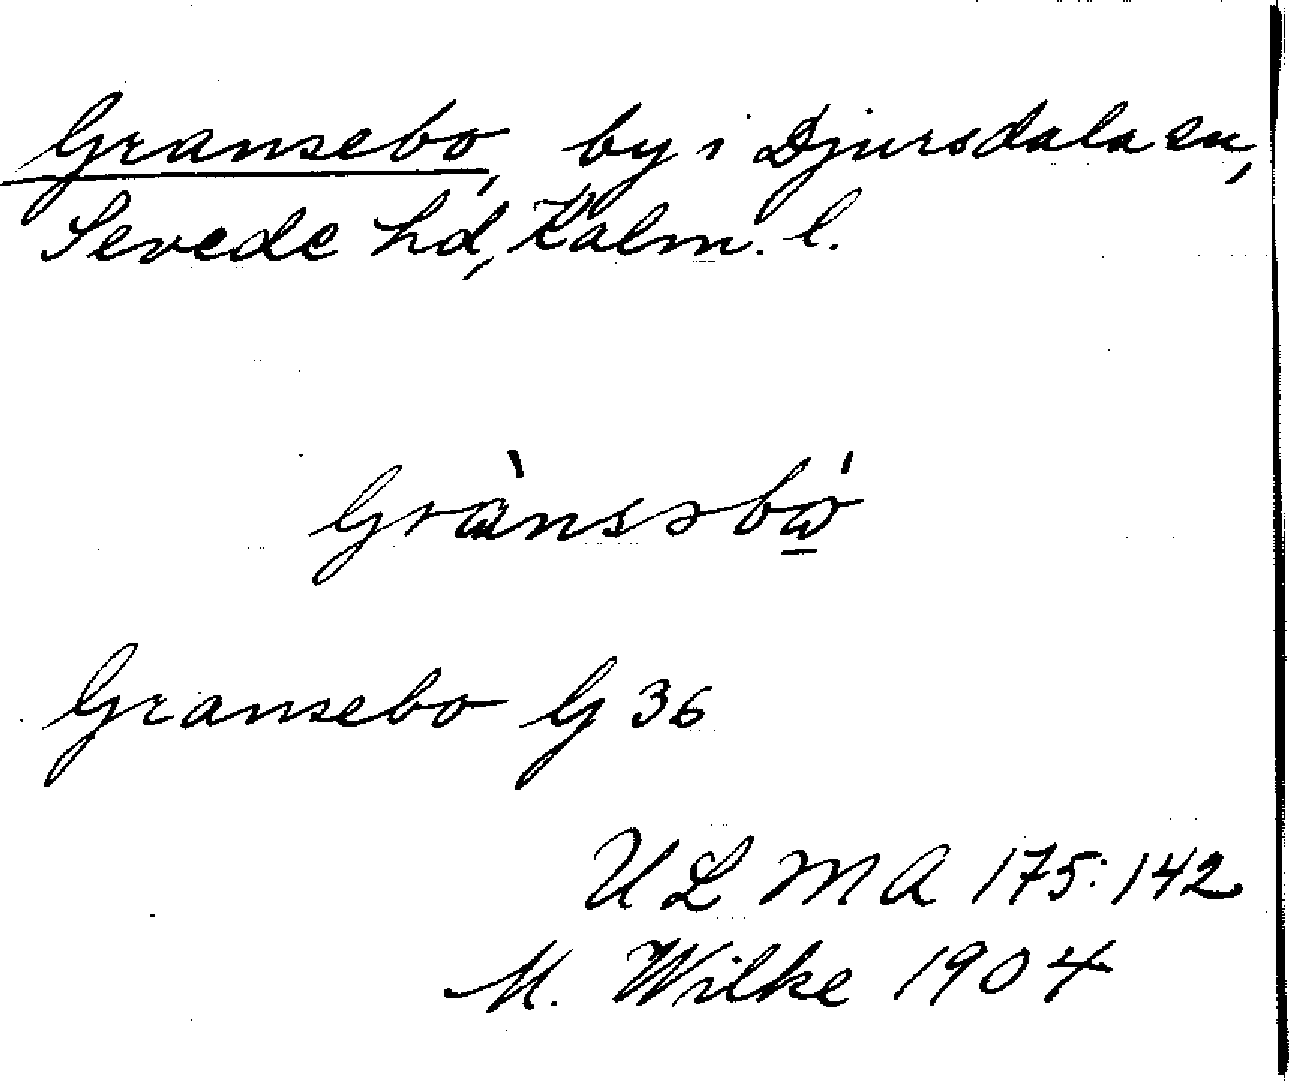 Gransebo, by i Djursdala sn,
Sevede hd, Kalm. l.
Grànsəbώ
Gransebo G 36
ULMA 175:142
M. Wilke 1904